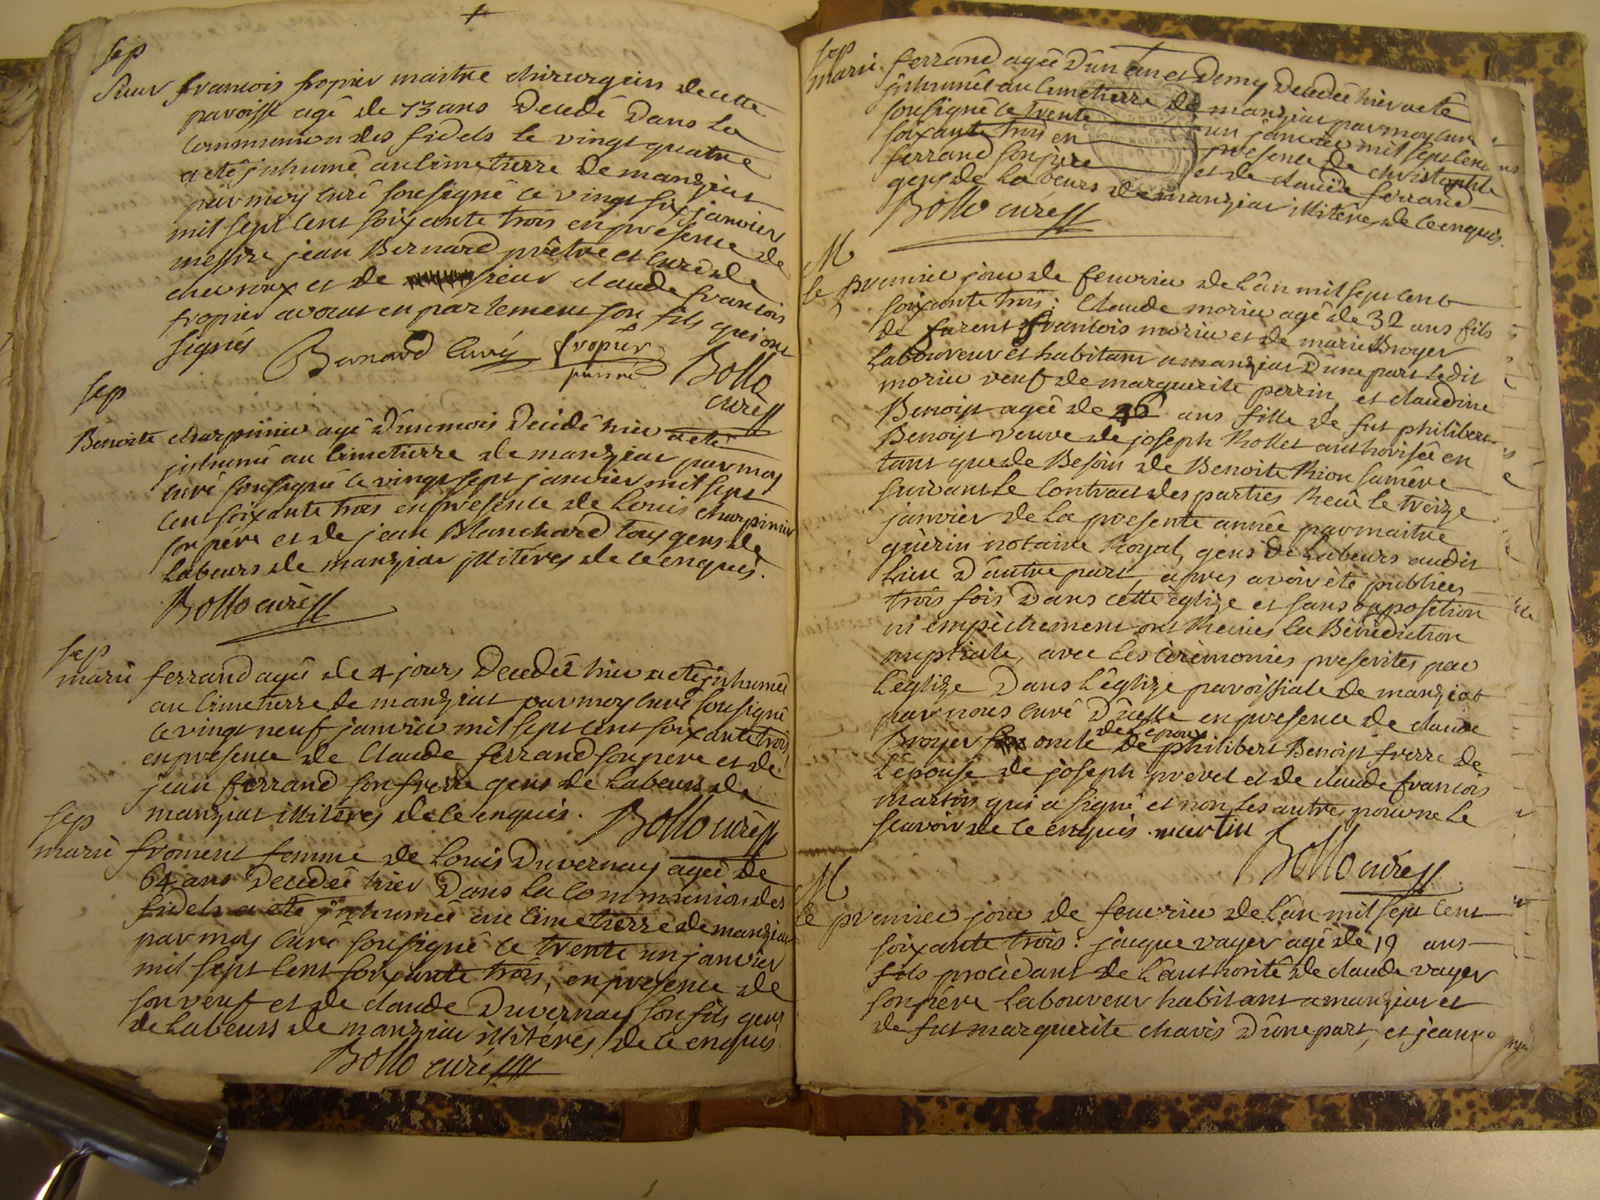 sep
Sieur francois fropier maitre chirurgien de cette
paroisse agé de 73 ans Decedé Dans La
communion des fidels le vingt quatre
a eté inhumé au Cimetierre De manziat
par moy curé soussigné ce vingt six janvier
mil sept cent soixante trois en presence de
messire jean Bernard prêtre et curé de
chevroux et de sieur claude francois
fropier avocat en parlement son fils qui ont
signés Bernard Curé fropier Bollo
curé
sep
Benoite charpinier agé D'un mois Decidé hier a eté
inhumé au Cimetierre de manziat par moy
curé soussigné ce vingt sept janvier mil sept
cent soixante trois en presence de Louis charpinier
son pere et de jean Blanchard tous gens de
Labeurs de manziat illiterés de ce enquis.
Bollo curé
sep
marie ferrand agée de 4 jours Decedée hier a eté inhumée
au Cimetierre de manziat par moy curé soussigné
ce vingt neuf janvier mil sept cent soixante trois
en presence de Claude ferrand son pere et de
jean ferrand son frere gens de Labeurs de
manziat illiterés de ce enquis. Bollo curé
sep
marie froment femme de Louis Duvernay agée de
64 ans Decedée hier Dans La Communion des
fidels a eté inhumée au Cimetierre de manziat
par moy curé soussigné ce trente un janvier
mil sept cent soixante trois, en presence de
son veuf et de claude Duvernay son fils gens
de Labeurs de manziat illitérés de ce enquis
Bollo curé
sep
marie ferrand agée D'un an et Demy Decedée hier a eté
inhumée au Cimetierre de manziat par moy curé
soussigné ce trente un janvier mil sept cent
soixante trois en presence de christophle
ferrand son pere et de claude ferrand
gens de Labeurs de manziat illiterés de ce enquis.
Bollo curé
M
Le premier jour de fevrier de L'an mil sept cent
soixante trois; Claude morier agé de 32 ans fils
de francois morier et de marie Broyer
Laboureur et habitant a manziat D'une part Ledit
morier veuf de marguerite perrin, et claudine
Benoist agée de 26 ans fille de fut philibert
Benoist veuve de joseph Rollet authorisée en
tant que de Besoin de Benoite Rion sa mère
suivant Le Contract des parties Recû le treize
janvier de La presente année par maitre
guèrin notaire Royal, gens de Labeurs audit
Lieu D'autre part, apres avoir été publiées
trois fois Dans cette eglize et sans opposition
ni empêchement ont Recües La Bénédiction
nuptiale, avec Les Ceremonies prescrites par
L'églize Dans L'églize paroissiale de manziat
par nous Curé D'icelle en presence de claude
Broyer oncle de L'epoux de philibert Benoist frere de
L'epouse de joseph prevel et de claude francois
martin qui a signé et non Les autres pour ne Le
scavoir de ce enquis. martin
Bollo curé
M
Le premier jour de fevrier de L'an mil sept cent
soixante trois: jacque vayer agé de 19 ans
fils procèdant de L'authorité de claude vayer
son père Laboureur habitant a manziat et
de fut marguerite chavis D'une part, et jeanne